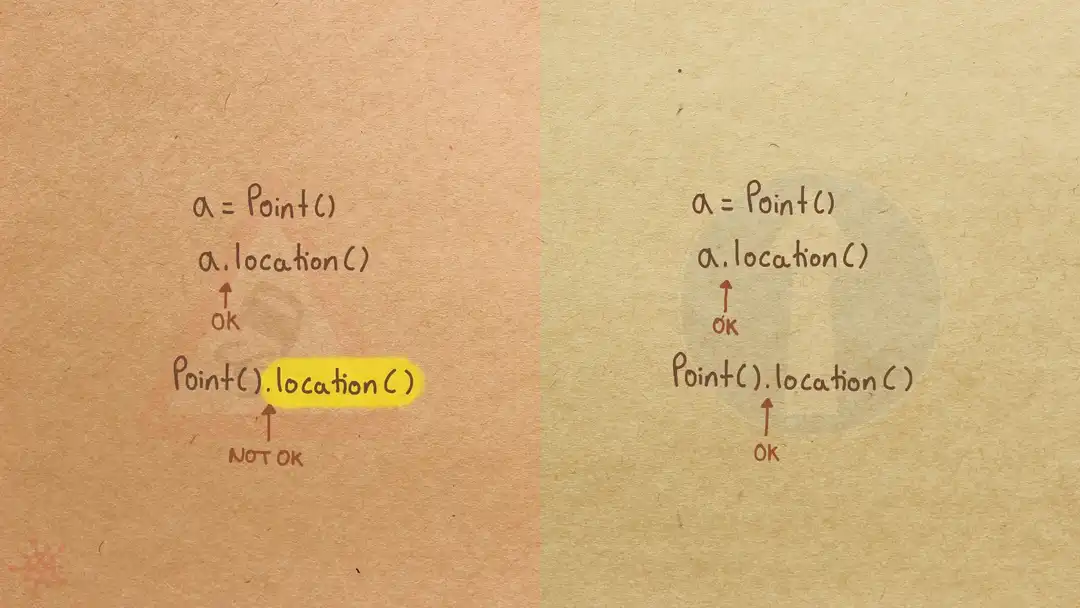 a = Point()
a.location()
OK
Point().location()
NOT OK
a = Point()
a.location()
OK
Point().location()
OK